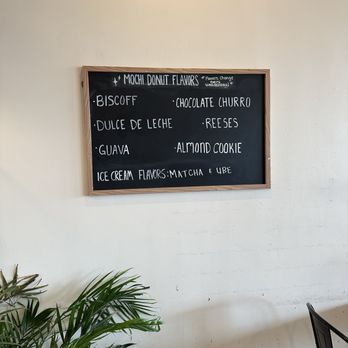 MOCHI DONUT FLAVORS *Flavors Change
· BISCOFF · CHOCOLATE CHURRO
· DULCE DE LECHE · REESES
· GUAVA · ALMOND COOKIE
ICE CREAM FLAVORS: MATCHA & UBE